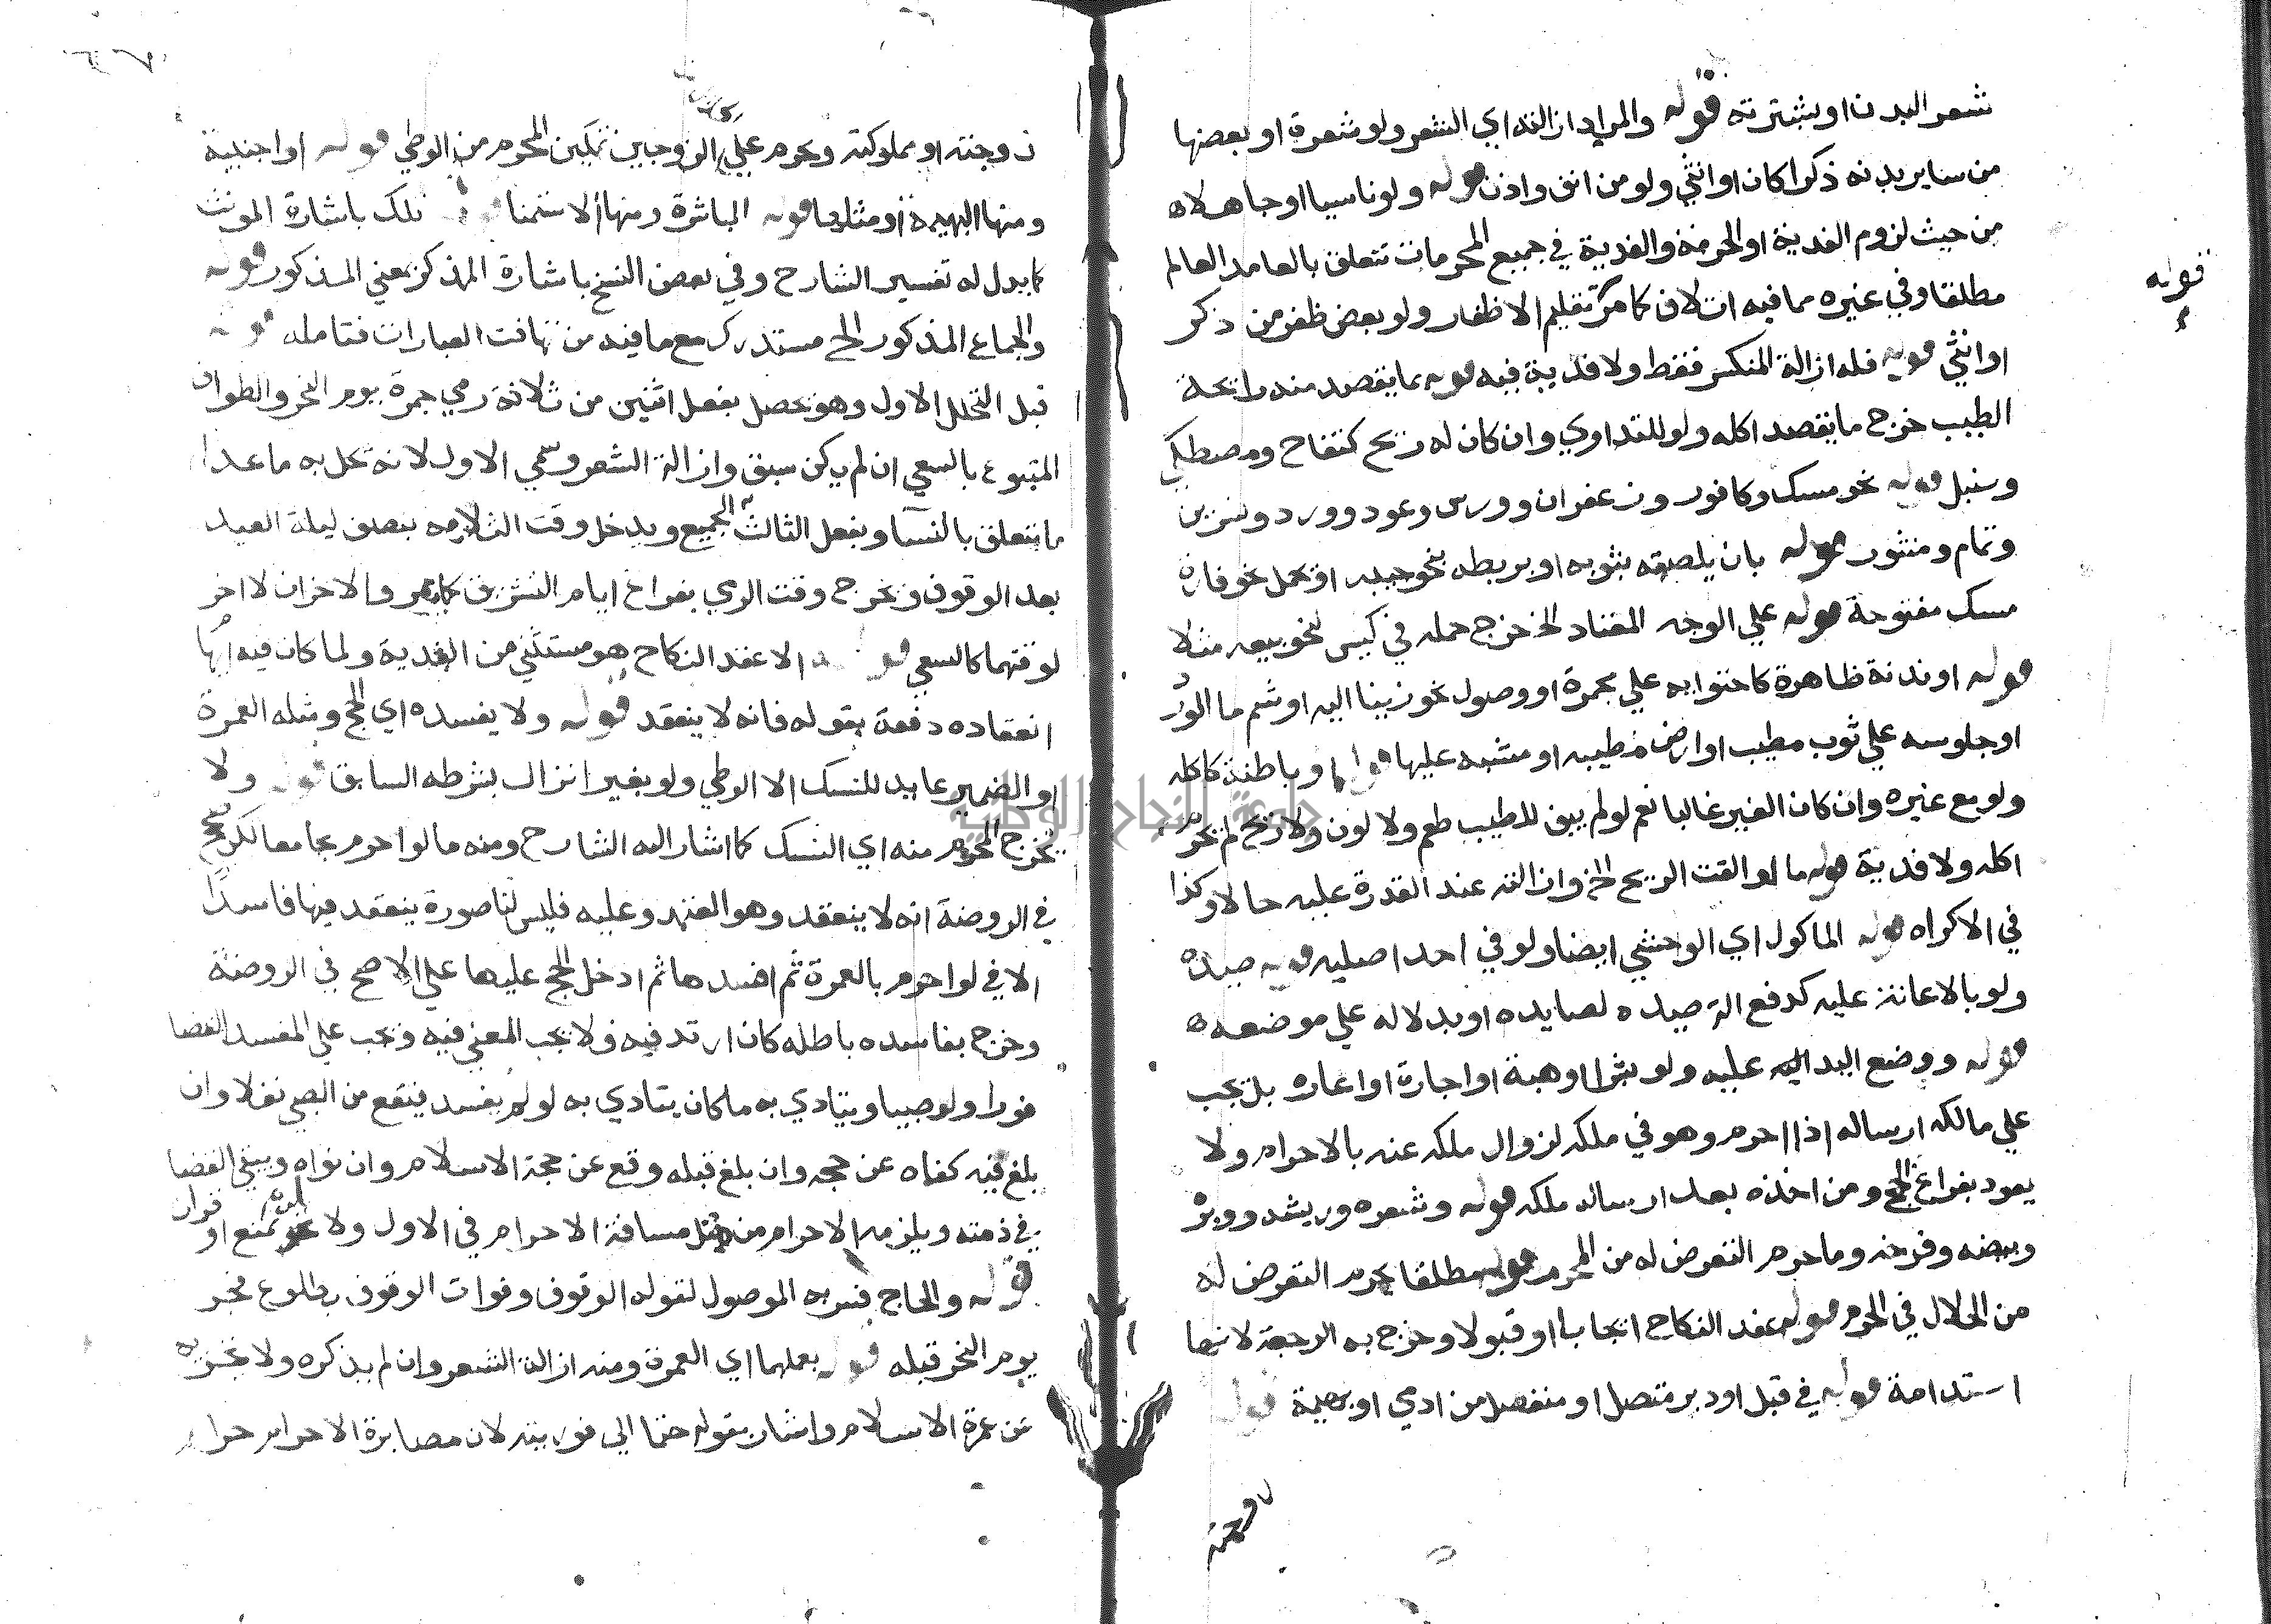 شعر البدن او بشرته قوله والمراد ازالته اي الشعر ولو شعرة او بعضها
من ساير بدنه ذكرا كان او انثي ولو من انف واذن قوله ولو ناسيا او جاهلا
من حيث لزوم الفدية او الحرمة والفدية في جميع المحرمات تتعلق بالعامد العالم
مطلقا وفي غيره مما فيه اتلاف كما مر تقليم الاظفار ولو بعض ظفر من ذكر
او انثي قوله فله ازالة المنكسر فقط ولا فدية فيه قوله بما يقصد منه رايحة
الطيب خرج ما يقصد اكله ولو للتداوي وان كان له ريح كتفاح ومصطكي
وسنبل قوله نحو مسك وكافور وزعفران وورس وعود وورد ونسرين
ونمام ومنثور قوله بان يلصقه بثوبه او يربطه بنحو جيبه او حمل نحو فارة
مسك مفتوحة قوله علي الوجه المعتاد الخ خرج حمله في كيس لنحو بيعه مثلا
قوله او بدنه ظاهرة كاحتوايه علي مجمرة او وصول نحو زيتنا اليه او شم ما الورد
او جلوسه علي ثوب مطيب او ارض مطيبه او مشبه عليها قوله او باطنة كاكله
ولو مع غيره وان كان الغير غالبا نعم لو لم يبق للطيب طعم ولا لون ولا ريح لم يحرم
اكله ولا فدية قوله ما لو القت الريح الخ وازالته عند القدرة عليه حالا وكذا
في الاكراه قوله الماكول اي الوحشي ايضا ولو في احد اصليه قوله صيده
ولو بالاعانة عليه كدفع الة صيده لصايده او بدلاله علي موضعه
قوله ووضع اليد عليه ولو بشرا او هبة او اجارة او اعاره بل يجب
علي مالكه ارساله اذا احرم وهو في ملكه لزوال ملكه عنه بالاحرام ولا
يعود بفراغ الحج ومن اخذه بعد ارساله ملكه قوله وشعره وريشه ووبره
وبيضه وفرخه وما حرم التعرض له من المحرم قوله مطلقا يحرم التعرض له
من الحلال في الحرم قوله عقد النكاح ايجابا او قبولا وخرج به الرجعة لانها
استدامة قوله في قبل او دبر متصل او منفصل من ادمي او بهيمة قوله
قوله
زوجته او مملوكته ويحرم علي الزوجين تمكين المحرم من الوطي قوله او اجنبية
ومنها البهيمة ومثلها قوله المباشرة ومنها الاستمنا قوله تلك باشارة المونث
كما يدل له تفسير الشارح وفي بعض النسخ باشارة المذكر يعني المذكور قوله
والجماع المذكور الخ مستدرك مع ما فيه من تهافت العبارات فتامله قوله
قبل التحلل الاول وهو يحصل بفعل اثنين من ثلاثة رمي جمرة يوم النحر والطواف
المتبوع بالسعي ان لم يكن سبق وازالة الشعر وسمي الاول لانه يحل به ما عدا
ما يتعلق بالنسا وبفعل الثالث الجميع ويدخل وقت الثلاثة بنصف ليلة العيد
بعد الوقوف وخرج وقت الرمي بفراغ ايام التشريق كما مر والاخران لا اخر
لوقتهما كالسعي قوله الا عقد النكاح هو مستثني من الفدية ولما كان فيه ايهام
انعقاده دفعه بقوله فانه لا ينعقد قوله ولا يفسده اي الحج ومثله العمرة
او الضمير عايد للنسك الا الوطي ولو بغير انزال بشرطه السابق قوله ولا
يخرج المحرم منه اي النسك كما اشار اليه الشارح ومنه ما لو احرم مجامعا لكن صحح
في الروضة انه لا ينعقد وهو المعتمد وعليه فليس لنا صورة ينعقد فيها فاسدا
الا في لو احرم بالعمرة ثم افسدها ثم ادخل الحج عليها علي الاصح في الروضة
وخرج بفاسده باطله كان ارتد فيه فلا يجب المضي فيه ويجب علي المفسد القضا
فورا ولو صبيا ويتادي به ما كان يتادي به لو لم يفسد فيقع من الصبي نفلا وان
بلغ فيه كفاه عن حجه وان بلغ قبله وقع عن حجة الاسلام وان نواه ويبقي القضا
في ذمته ويلزمه الاحرام من مثل مسافة الاحرام في الاول ولا تمتع او قران
قوله والحاج فسر به الموصول لقوله الوقوف وفوات الوقوف بطلوع فجر
يوم النحر قبله قوله بعملها اي العمرة ومنه ازالة الشعر وان لم يذكره ولا تجزيه
عن عمرة الاسلام واشار بقوله حتما الي فوريته لان مصابرة الاحرام حرام